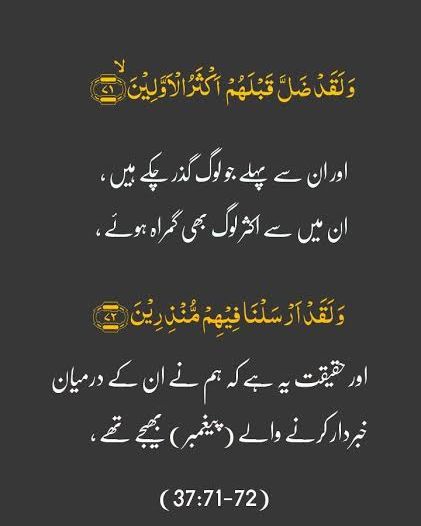 وَلَقَدۡ ضَلَّ قَبۡلَهُمۡ اَكۡثَرُ الۡاَوَّلِيۡنَۙ‏ ﴿۷۱﴾
اور ان سے پہلے جو لوگ گذر چکے ہیں ،
ان میں سے اکثر لوگ بھی گمراہ ہوئے ،
وَلَقَدۡ اَرۡسَلۡنَا فِيۡهِمۡ مُّنۡذِرِيۡنَ‏ ﴿۷۲﴾
اور حقیقت یہ ہے کہ ہم نے ان کے درمیان
خبردار کرنے والے (پیغمبر) بھیجے تھے ،
(37:71-72)